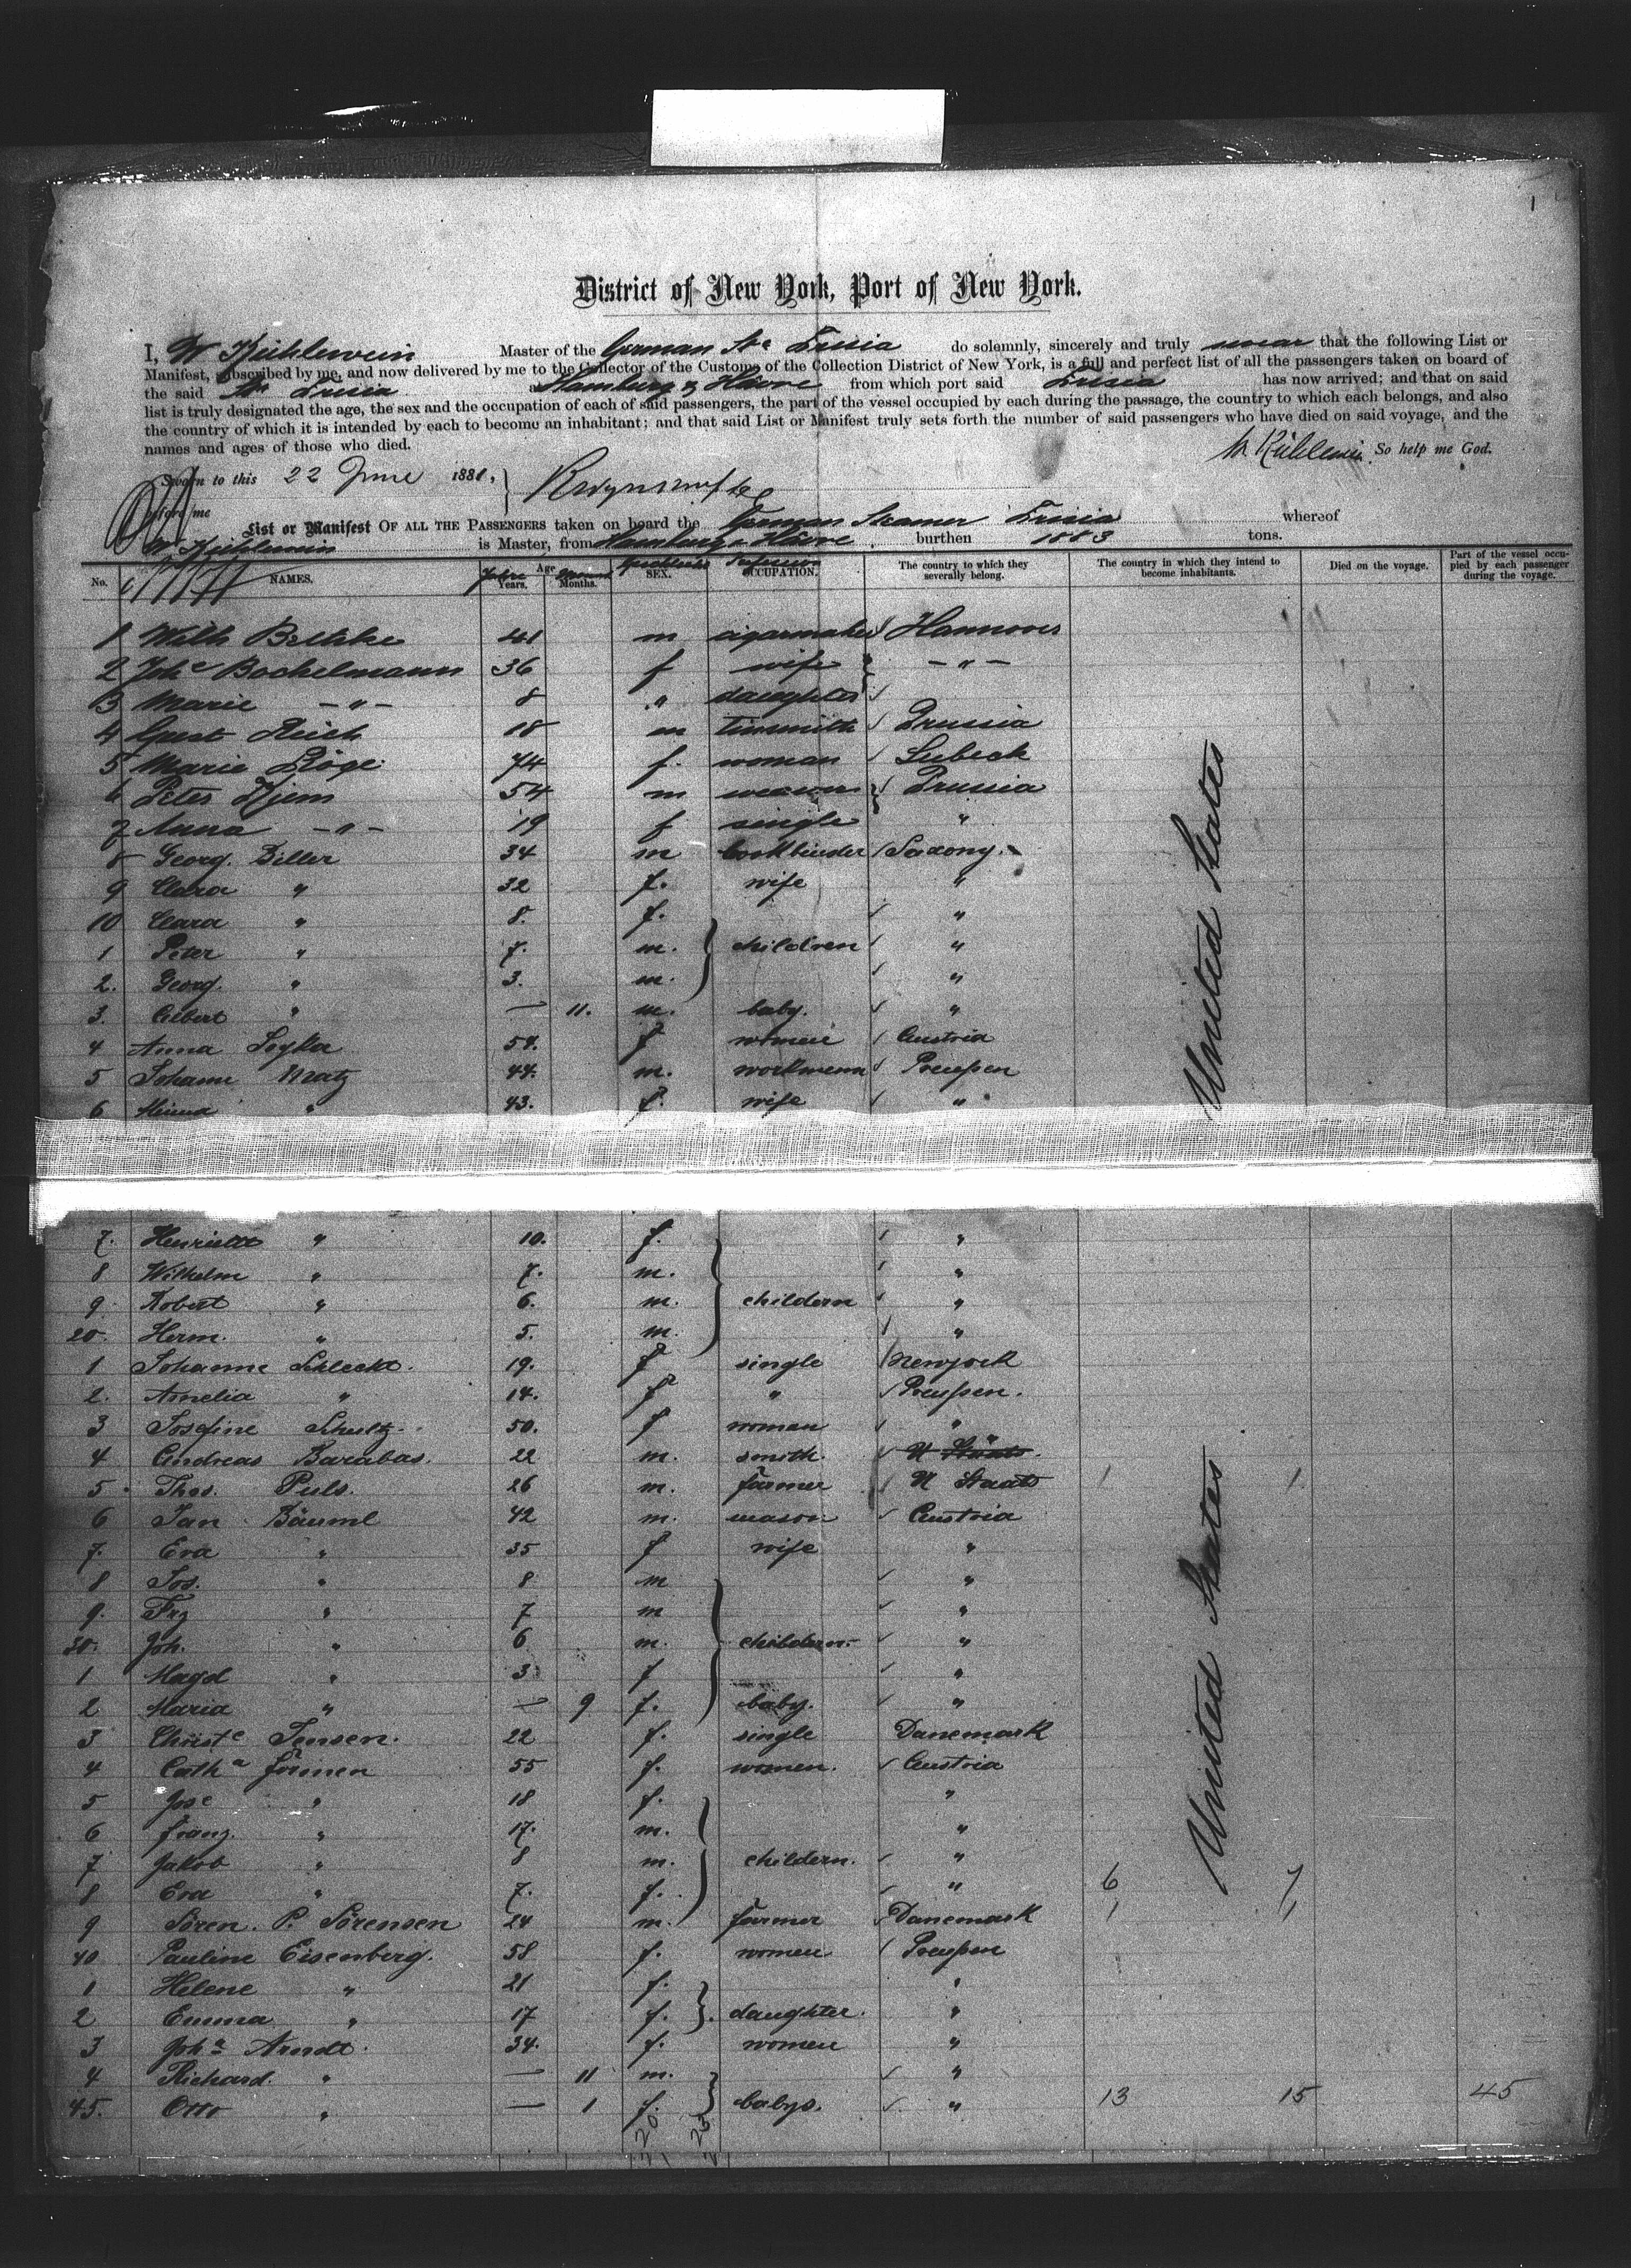 1
District of New York, Port of New York.
I, W Kühlewein Master of the German Str Frisia do solemnly, sincerely and truly swear that the following List or
Manifest, subscribed by me, and now delivered by me to the Collector of the Customs of the Collection District of New York, is a full and perfect list of all the passengers taken on board of
the said Str Frisia at Hamburg & Hâvre from which port said Frisia has now arrived; and that on said
list is truly designated the age, the sex and the occupation of each of said passengers, the part of the vessel occupied by each during the passage, the country to which each belongs, and also
the country of which it is intended by each to become an inhabitant; and that said List or Manifest truly sets forth the number of said passengers who have died on said voyage, and the
names and ages of those who died.
W Kühlewein So help me God.
Sworn to this 22 June 1881,
before me
List or Manifest OF ALL THE PASSENGERS taken on board the German Steamer Frisia whereof
W. Kühlewein is Master, from Hamburg & Hâvre burthen tons.
No. NAMES. Age Years. Months. SEX. OCCUPATION. The country to which they severally belong. The country in which they intend to become inhabitants. Died on the voyage. Part of the vessel occupied by each passenger during the voyage.
1 41 m cigarmaker Hannover
2 Johe Bockelmann 36 f wife - " -
3 Marie - " - 8 " daughter
4 Reich 18 m tinsmith Prussia
5 Marie 74 f. woman Lubeck
6 Peter 54 m weaver Prussia
7 Anna - " - 19 f single "
8 Georg. Ziller 34 m bookbinder Saxony.
9 Clara " 32 f. wife "
10 Clara " 8. f. "
1 Peter " 7. m. children "
2. Georg. " 3. m. "
3. Albert " — 11. m. baby. "
4 Anna 54. f women Austria
5 Johann Kratz 44. m. workmann Preußen
6 Minna " 43. f. wife "
United States
7. Henriette " 10. f. "
8 Wilhelm " 7. m. "
9. Robert " 6. m. childern "
20. Herm. " 5. m. "
1 Johanne Schlecht. 19. f single Newyork
2. Amelia " 14. f " Preußen.
3 Josefine Schultz. 50. f woman "
4 Andreas Barabas. 22 m. smith. U Staats. "
5 Thos. Puls. 26 m. farmer U Staats 1 1
6 Jan Bäuml 42 m. mason Austria
7. Eva " 35 f wife "
8 Jos. " 8 m "
9. Frz " 7 m "
30. Joh. " 6 m. childern. "
1 Magd " 3 f "
2 Maria " — 9 f. baby. "
3 Christe Jensen. 22 f. single Danemark
4 Catha 55 f. women. Austria
5 Jose " 18 f. "
6 Franz. " 17. m. "
7 Jakob " 8 m. childern. "
8 Eva " 7. f. " 6 7
9 Sören. P. Sörensen 24 m. farmer Danemark 1 1
40 Pauline Eisenberg. 58 f. women Preußen
1 Helene " 21 f. "
2 Emma " 17 f. daughter. "
3 Joha Arndt. 34. f. women "
4 Richard. " — 11 m. "
45. Otto " — 1 f. babys. " 13 15 45
United States
20 25